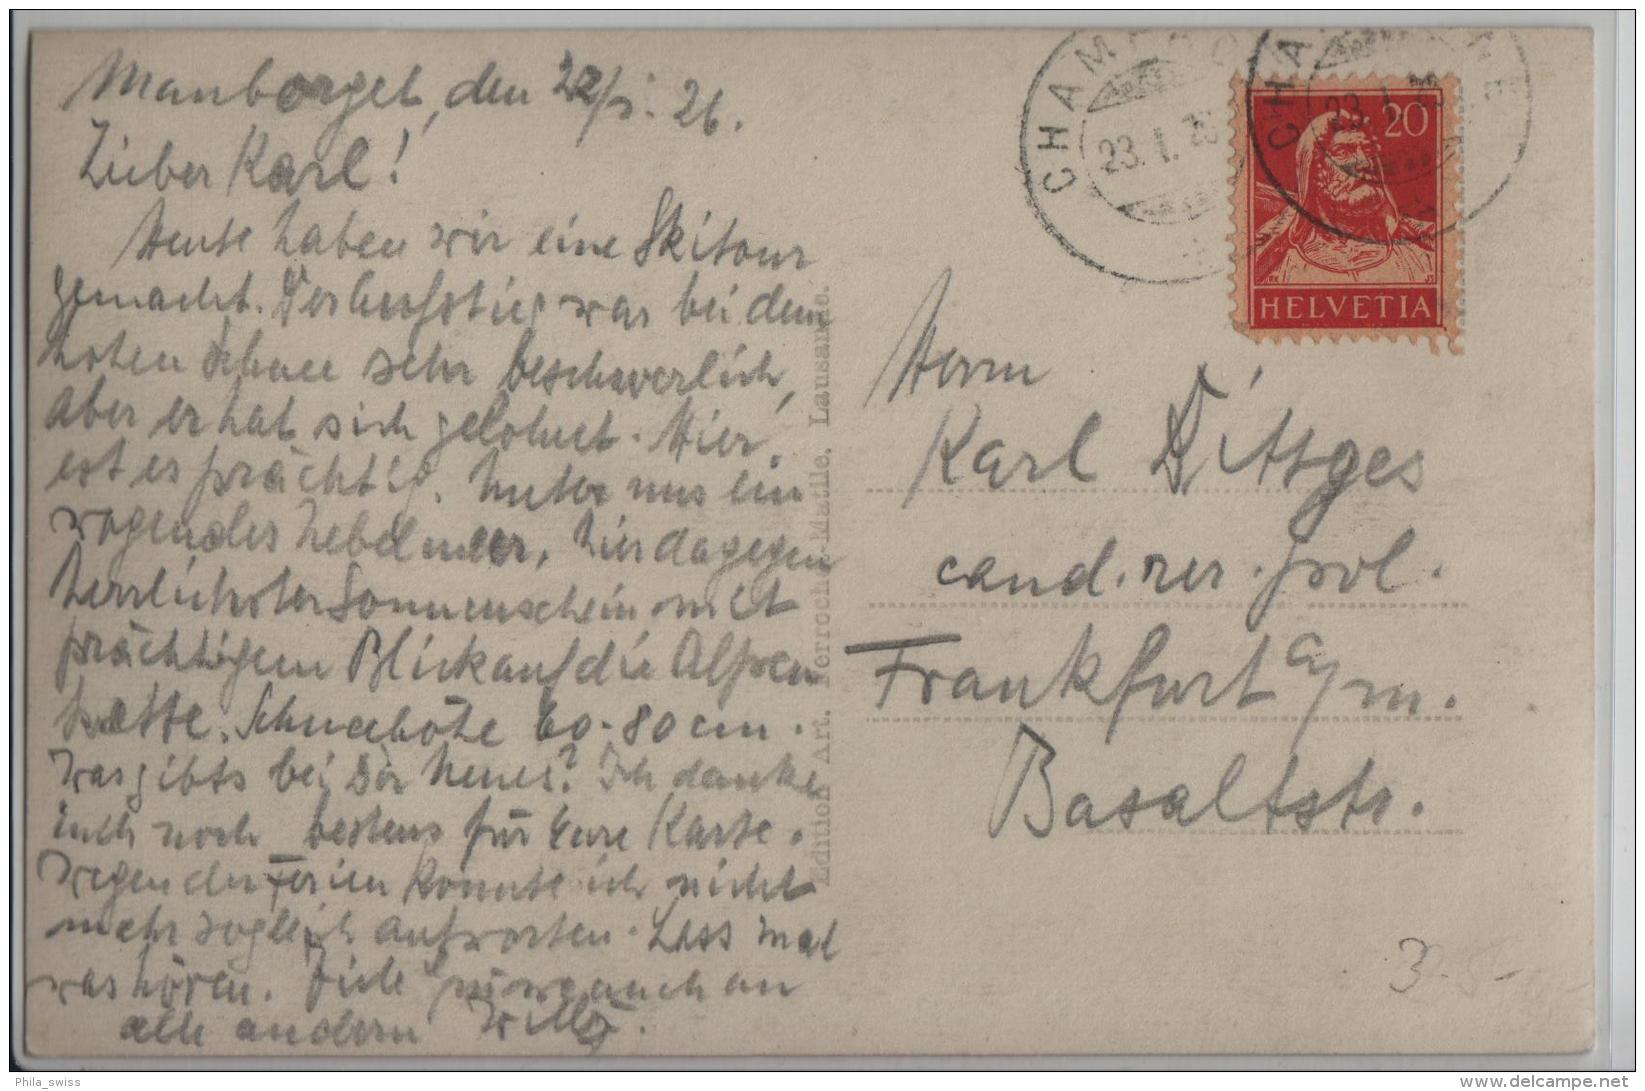 Mauborget, den 22/1. 26.
Lieber Karl!
Heute haben wir eine Skitour
gemacht. Der Aufstieg war bei dem
hohen Schnee sehr beschwerlich,
aber er hat sich gelohnt. Hier
ist es prächtig. Unter uns ein
wogendes Nebelmeer, hier dagegen
herrlichster Sonnenschein mit
prächtigem Blick auf die Alpen
kette. Schneehöhe 60-80 cm.
Was gibts bei Dir Neues? Ich danke
Euch noch bestens für Eure Karte.
Wegen der Ferien konnte ich nicht
mehr sogleich antworten. Lass mal
was hören. Viele Grüsse auch an
alle andern Willy.
Edition Art. Perrochet-Matile, Lausanne.
CHAMPAGNE
23.1.26
CHAMPAGNE
23.1.26
20
HELVETIA
Herrn
Karl Dittges
cand. rer. pol.
Frankfurt a/m.
Basaltstr.
3.5-
Phila_swiss
delcampe.net